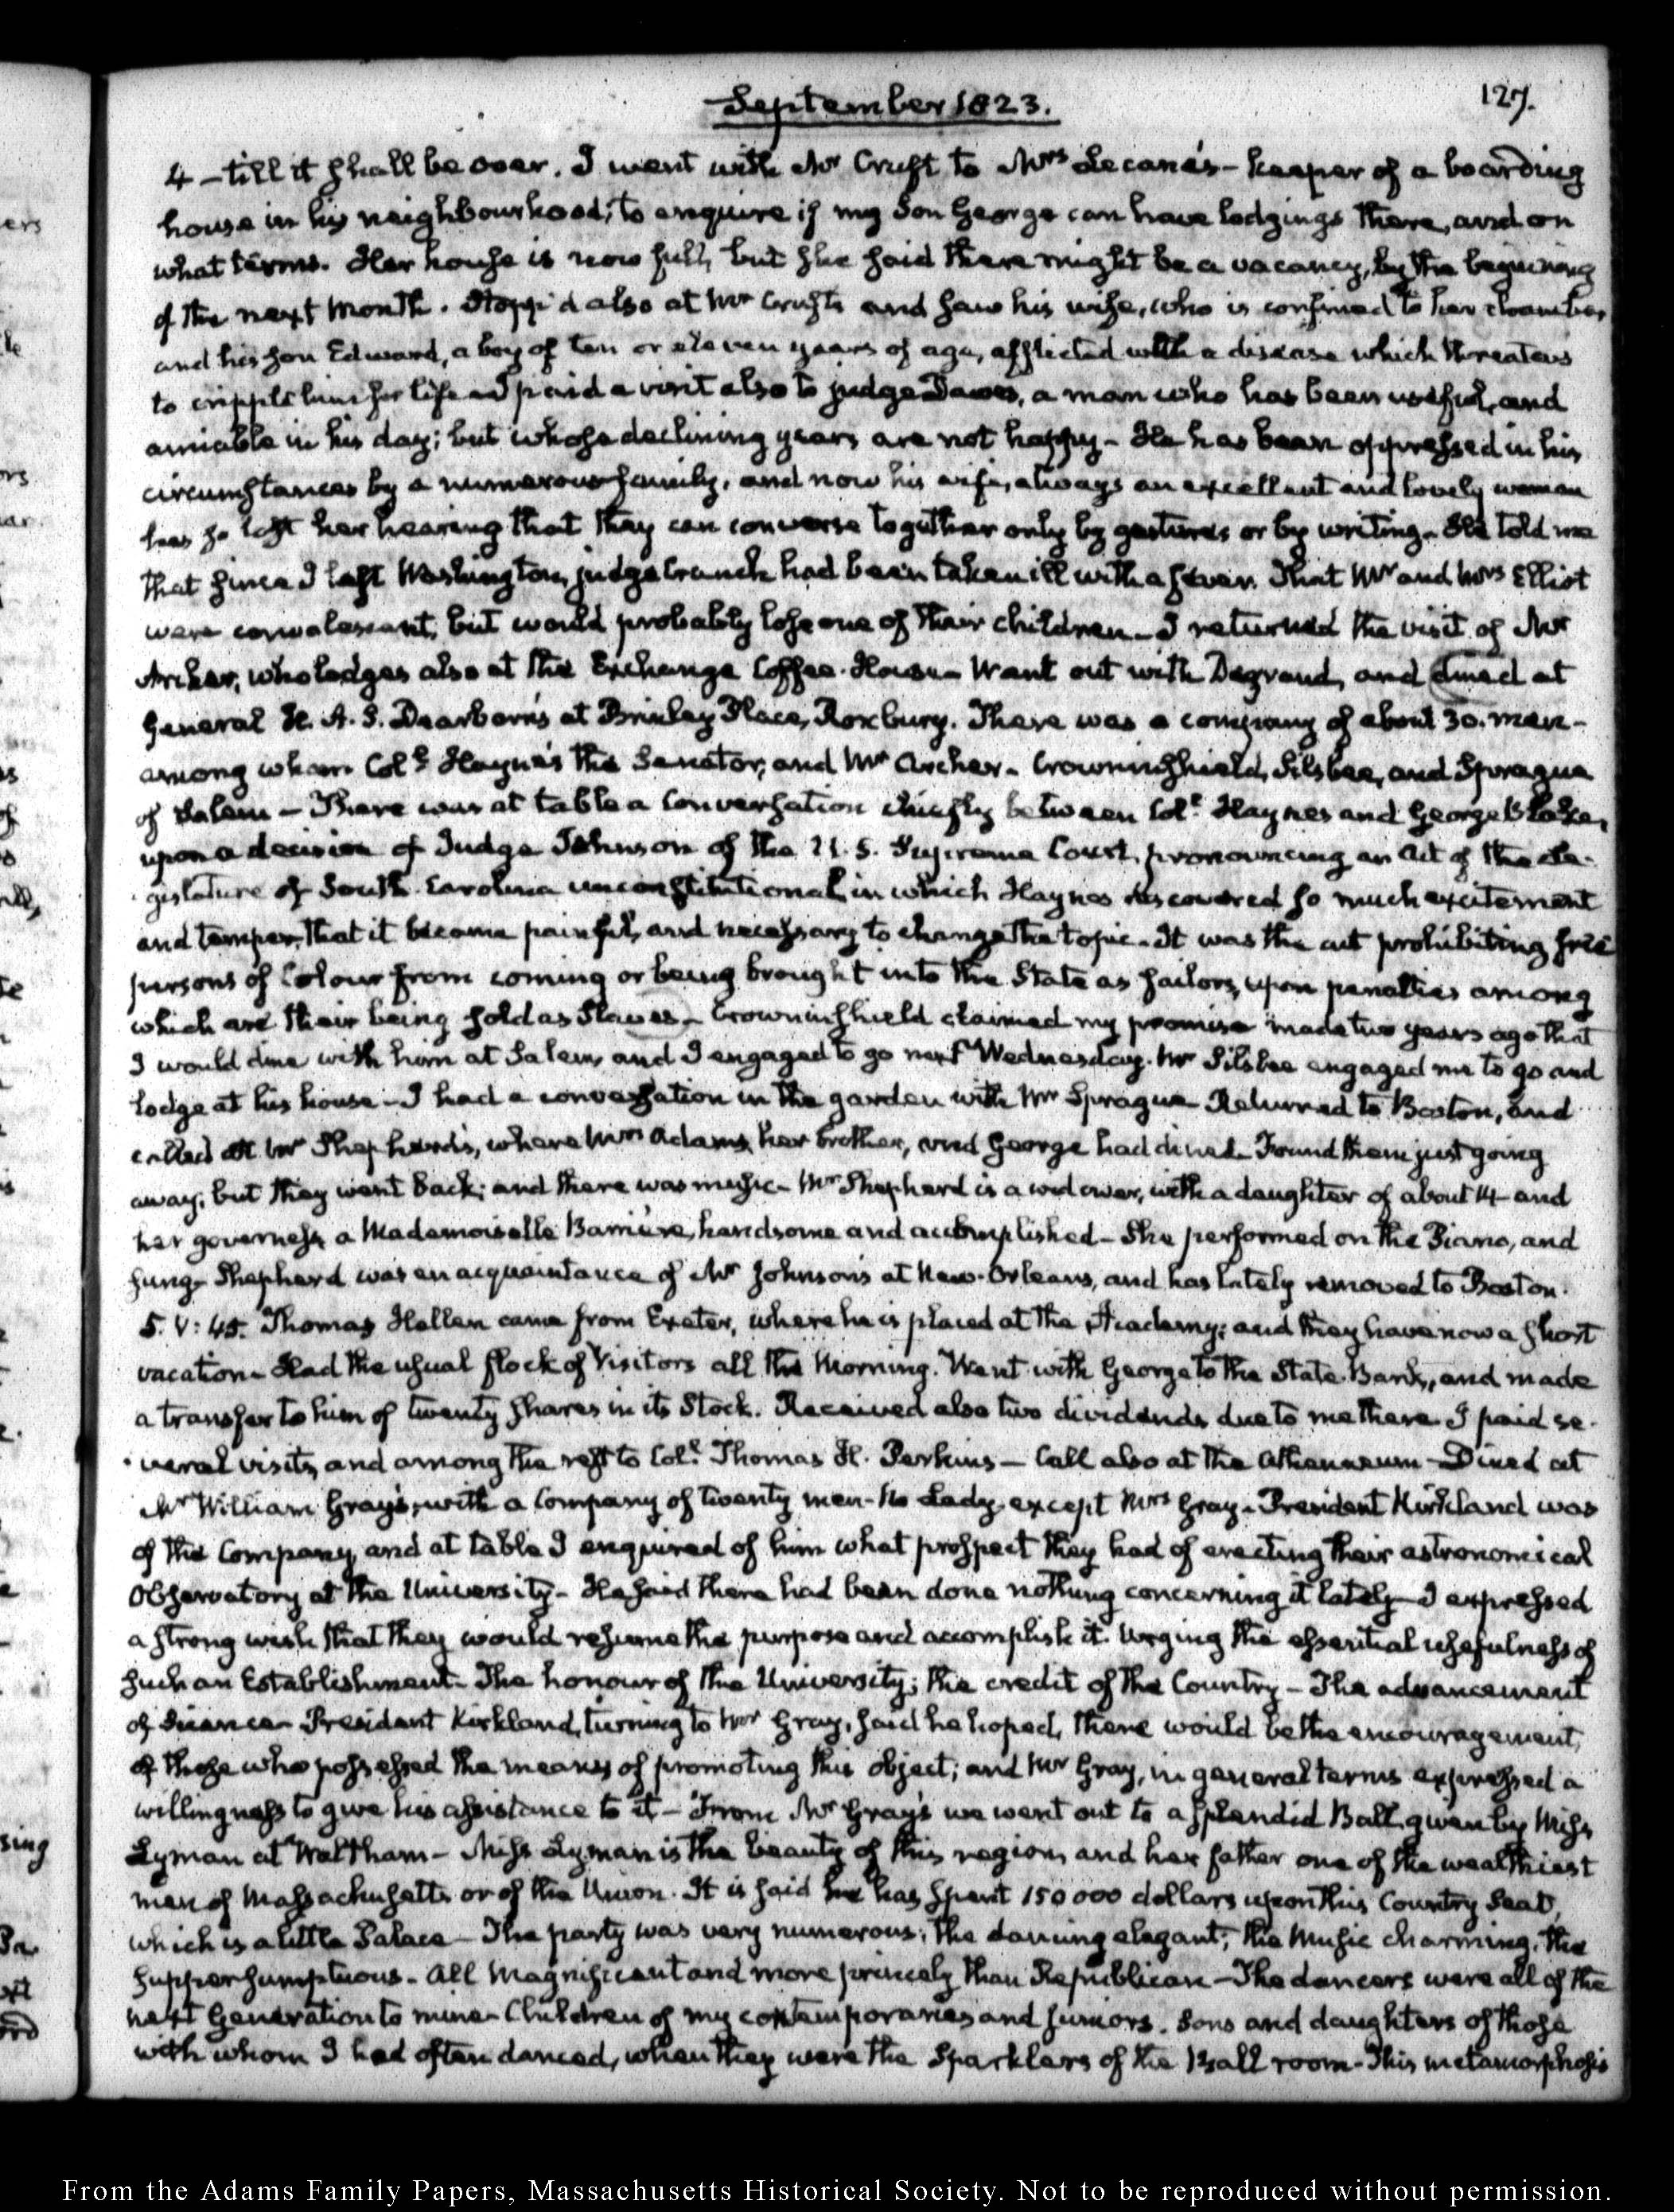 September 1823.
127.
4 – till it shall be over. I went with Mr Cruft to Mrs Lecane's – keeper of a boarding
house in his neighbourhood, to enquire if my Son George can have lodgings there, and on
what terms. Her house is now full, but she said there might be a vacancy, by the beginning
of the next month. Stopp'd also at Mr Cruft's and saw his wife, who is confined to her chamber,
and his son Edward, a boy of ten or eleven years of age, afflicted with a disease which threatens
to cripple him for life – I paid a visit also to judge Dawes, a man who has been useful, and
amiable in his day; but whose declining years are not happy – He has been oppressed in his
circumstances by a numerous family, and now his wife, always an excellent and lovely woman
has so lost her hearing that they can converse together only by gestures or by writing – He told me
that since I left Washington, judge Cranch had been taken ill with a fever. That Mr and Mrs Elliot
were convalescent, but would probably lose one of their children – I returned the visit of Mr
Archer, who lodges also at the Exchange Coffee-House – Went out with Degrand, and dined at
General H. A. S. Dearborn's at Brinley Place, Roxbury. There was a company of about 30. men –
among whom Coll. Haynes the Senator, and Mr Archer – Crowninshield, Silsbee, and Sprague
of Salem – There was at table a Conversation chiefly between Coll. Haynes and George Blake,
upon a decision of Judge Johnson of the U.S. Supreme Court, pronouncing an Act of the Le-
gislature of South-Carolina unconstitutional, in which Haynes discovered so much excitement
and temper, that it became painful, and necessary to change the topic – It was the act prohibiting free
persons of Colour from coming or being brought into the State as sailors, upon penalties among
which are their being sold as Slaves – Crowninshield claimed my promise made two years ago that
I would dine with him at Salem, and I engaged to go next Wednesday. Mr Silsbee engaged me to go and
lodge at his house – I had a conversation in the garden with Mr Sprague Returned to Boston, and
called at Mr Shepherd's, where Mrs Adams, her brother, and George had dined – Found them just going
away, but they went back; and there was music – Mr Shepherd is a widower, with a daughter of about 14 and
her governess, a Mademoiselle Barrière, handsome and accomplished – She performed on the Piano, and
sung – Shepherd was an acquaintance of Mr Johnson's at New-Orleans, and has lately removed to Boston.
5. V:45. Thomas Hellen came from Exeter, where he is placed at the Academy; and they have now a short
vacation – Had the usual flock of Visitors all the Morning. Went with George to the State Bank, and made
a transfer to him of twenty shares in its Stock. Received also two dividends due to me there. I paid se-
veral visits, and among the rest to Coll. Thomas H. Perkins – Call also at the Athenaeum – Dined at
Mr William Gray's, with a Company of twenty men – No Lady except Mrs Gray – President Kirkland was
of the Company, and at table I enquired of him what prospect they had of erecting their astronomical
Observatory at the University – He said there had been done nothing concerning it lately – I expressed
a strong wish that they would resume the purpose and accomplish it. Urging the essential usefulness of
such an Establishment – The honour of the University; the credit of the Country – The advancement
of Science – President Kirkland, turning to Mr Gray, said he hoped, there would be the encouragement,
of those who possessed the means of promoting this object; and Mr Gray, in general terms expressed a
willingness to give his assistance to it – From Mr Gray's we went out to a splendid Ball, given by Miss
Lyman at Waltham – Miss Lyman is the beauty of this region, and her father one of the wealthiest
men of Massachusetts or of the Union. It is said he has spent 150000 dollars upon this Country Seat,
which is a little Palace – The party was very numerous; the dancing elegant, the Music charming, the
supper sumptuous – All Magnificent and more princely than Republican – The dancers were all of the
next Generation to mine – Children of my contemporaries and juniors. Sons and daughters of those
with whom I had often danced, when they were the Sparklers of the Ball room – This metamorphosis
From the Adams Family Papers, Massachusetts Historical Society. Not to be reproduced without permission.